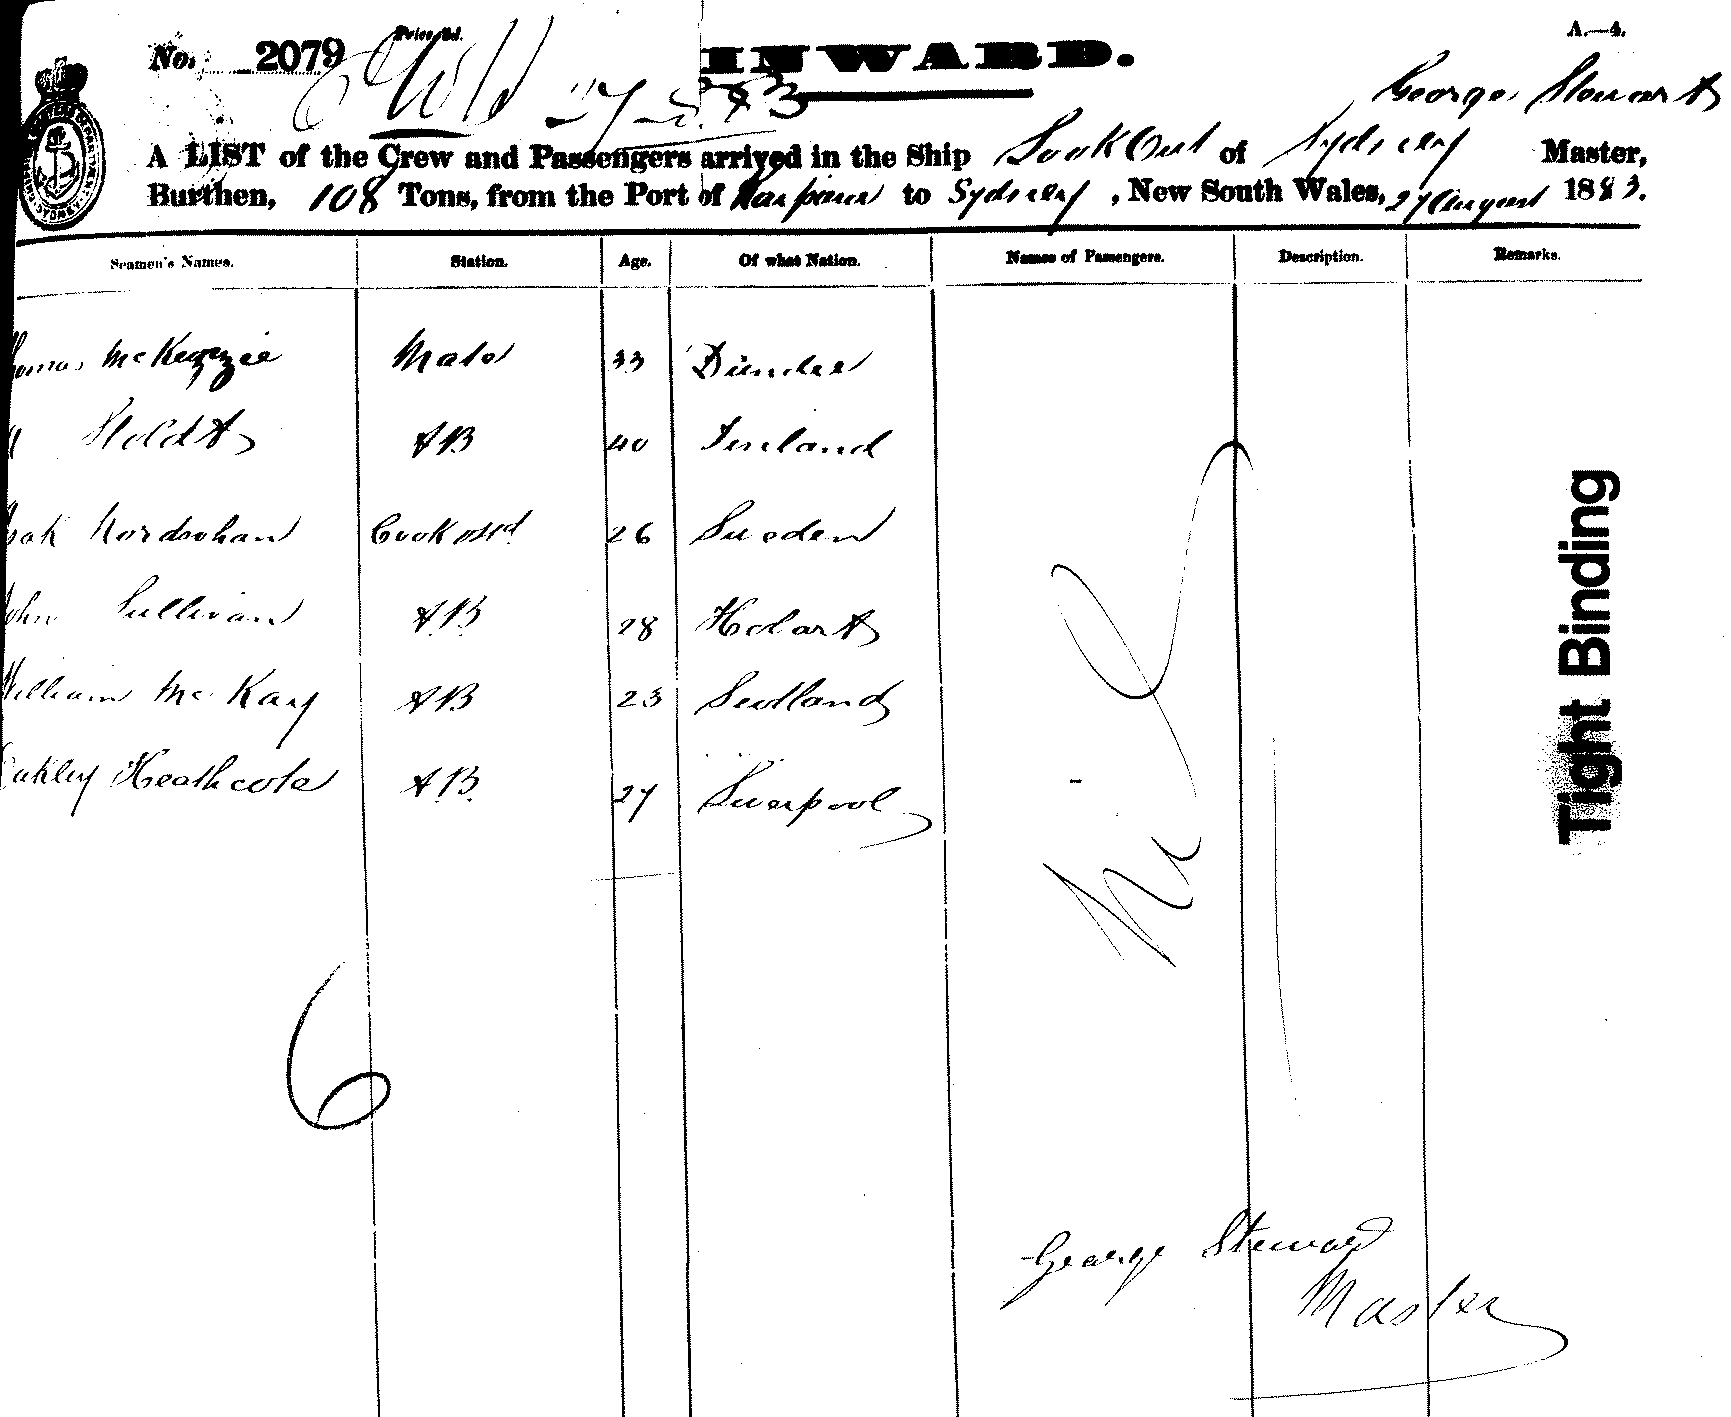 No. 2079 Price 3d. INWARD. A.—4.
27-8-83
George Stewart
A LIST of the Crew and Passengers arrived in the Ship Look Out of Sydney Master,
Burthen, 108 Tons, from the Port of to Sydney, New South Wales, 27 August 1883.
Seamen's Names. Station. Age. Of what Nation. Names of Passengers. Description. Remarks.
homas McKenzie Mate 33 Dundee
Holdt AB 40 Finland
Nordsohan Cook & Std 26 Sweden
John Sullivan A.B. 28 Hobart
William McKay AB 23 Scotland
Oakley Heathcote A.B. 27 Liverpool
Nil
6
George Steward
Master
Tight Binding